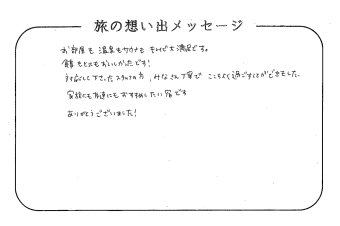 旅の想い出メッセージ
お部屋も 温泉も サウナも とっても大満足です。
食事もとてもおいしかったです!
対応して下さったスタッフの方、みなさん丁寧で こころよく過ごすことができました。
家族にも友達にもおすすめしたい宿です
ありがとうございました!